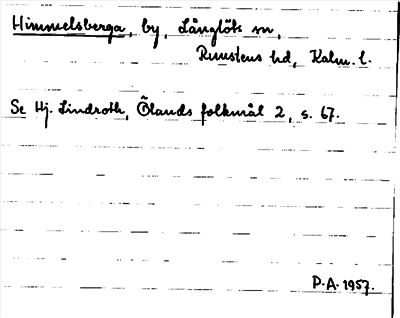 Himmelsberga, by, Långlöts sn,
Runstens hd, Kalm. l.
Se Hj. Lindroth, Ölands folkmål 2, s. 67.
P.A. 1957.